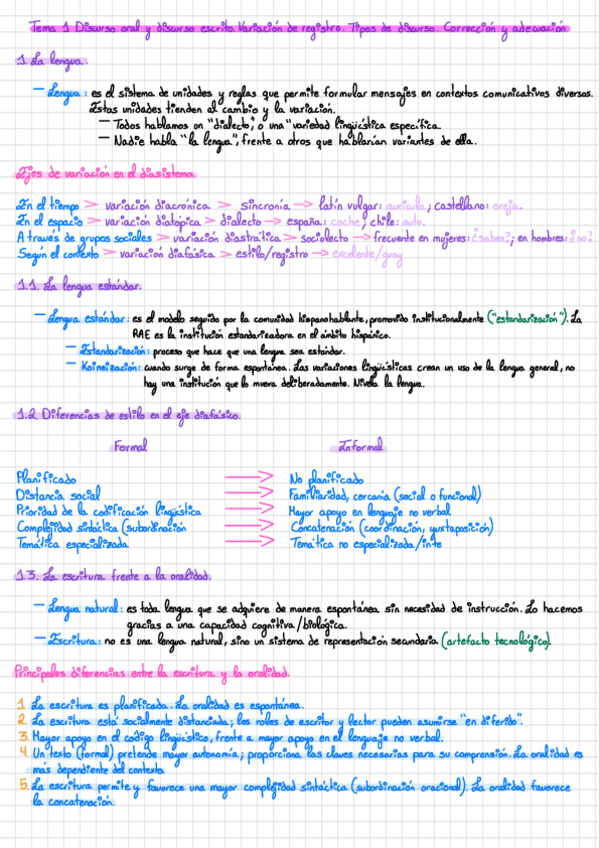 Tema 1 Discurso oral y discurso escrito. Variación de registro. Tipos de discurso. Corrección y adecuación
1 La lengua.
— Lengua: es el sistema de unidades y reglas que permite formular mensajes en contextos comunicativos diversos.
Estas unidades tienden al cambio y la variación.
— Todos hablamos un "dialecto", o una "variedad lingüística específica.
— Nadie habla "la lengua", frente a otros que hablarían variantes de ella.
Ejes de variación en el diasistema
En el tiempo > variación diacrónica > sincronía → latín vulgar: auricula; castellano: oreja.
En el espacio > variación diatópica > dialecto → españa: coche; chile: auto.
A través de grupos sociales > variación diastrática > sociolecto → frecuente en mujeres: ¿sabes?; en hombres: ¿no?
Según el contexto > variación diafásica > estilo/registro → excelente/guay
1.1. La lengua estándar.
— Lengua estándar: es el modelo seguido por la comunidad hispanohablante, promovido institucionalmente ("estandarización"). La
RAE es la institución estandarizadora en el ámbito hispánico.
— Estandarización: proceso que hace que una lengua sea estándar.
— Koineización: cuando surge de forma espontánea. Las variaciones lingüísticas crean un uso de la lengua general, no
hay una institución que lo mueva deliberadamente. Nivela la lengua.
1.2 Diferencias de estilo en el eje diafásico.
Formal Informal
Planificado → No planificado
Distancia social → Familiaridad, cercanía (social o funcional)
Prioridad de la codificación lingüística → Mayor apoyo en lenguaje no verbal
Complejidad sintáctica (subordinación → Concatenación (coordinación, yuxtaposición)
Temática especializada → Temática no especializada/inte
1.3. La escritura frente a la oralidad.
— Lengua natural: es toda lengua que se adquiere de manera espontánea sin necesidad de instrucción. Lo hacemos
gracias a una capacidad cognitiva/biológica.
— Escritura: no es una lengua natural, sino un sistema de representación secundaria (artefacto tecnológico).
Principales diferencias entre la escritura y la oralidad.
1. La escritura es planificada. La oralidad es espontánea.
2. La escritura está socialmente distanciada; los roles de escritor y lector pueden asumirse "en diferido".
3. Mayor apoyo en el código lingüístico, frente a mayor apoyo en el lenguaje no verbal.
4. Un texto (formal) pretende mayor autonomía; proporciona las claves necesarias para su comprensión. La oralidad es
más dependiente del contexto.
5. La escritura permite y favorece una mayor complejidad sintáctica (subordinación oracional). La oralidad favorece
la concatenación.